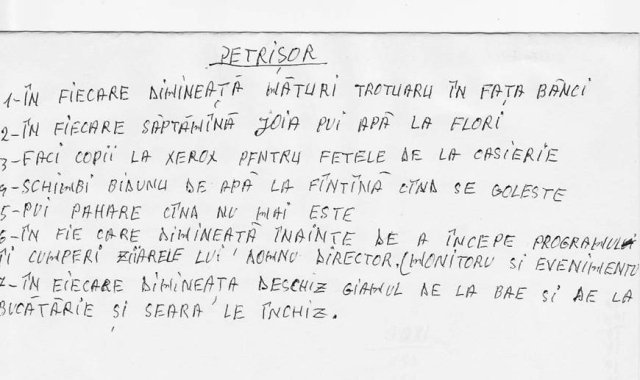 PETRISOR
1-ÎN FIECARE DIMINEAȚĂ MĂTURI TROTUARU ÎN FAȚA BĂNCI
2-ÎN FIECARE SĂPTĂMÎNĂ JOIA PUI APĂ LA FLORI
3-FACI COPII LA XEROX PENTRU FETELE DE LA CASIERIE
4-SCHIMBI BIDUNU DE APĂ LA FÎNTÎNĂ CÎND SE GOLESTE
5-PUI PAHARE CÎND NU MAI ESTE
6-ÎN FIE CARE DIMINEAȚĂ ÎNAINTE DE A ÎNCEPE PROGRAMULU
ÎI CUMPERI ZIARELE LUI DOMNU DIRECTOR.(MONITORU SI EVENIMENTU
7-ÎN FIECARE DIMINEAȚA DESCHIZ GIAMUL DE LA BAE SI DE LA
BUCĂTĂRIE ȘI SEARA LE ÎNCHIZ.